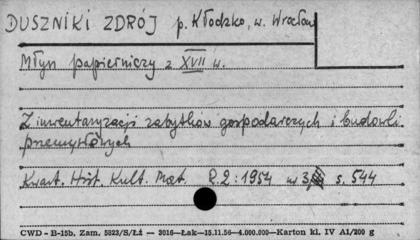 DUSZNIKI ZDRÓJ p. Kłodzko, w. Wrocław
Młyn papierniczy z XVII w.
Z inwentaryzacji zabytków gospodarczych i budowli
przemysłowych
Kwart. Hist. Kult. Mat. R.2:1954 nr 3 s. 544
CWD - B-15b, Zam. 5823/S/Łż — 3016—Łak—15.11.56—4.000.000—Karton kl. IV A1/200 g